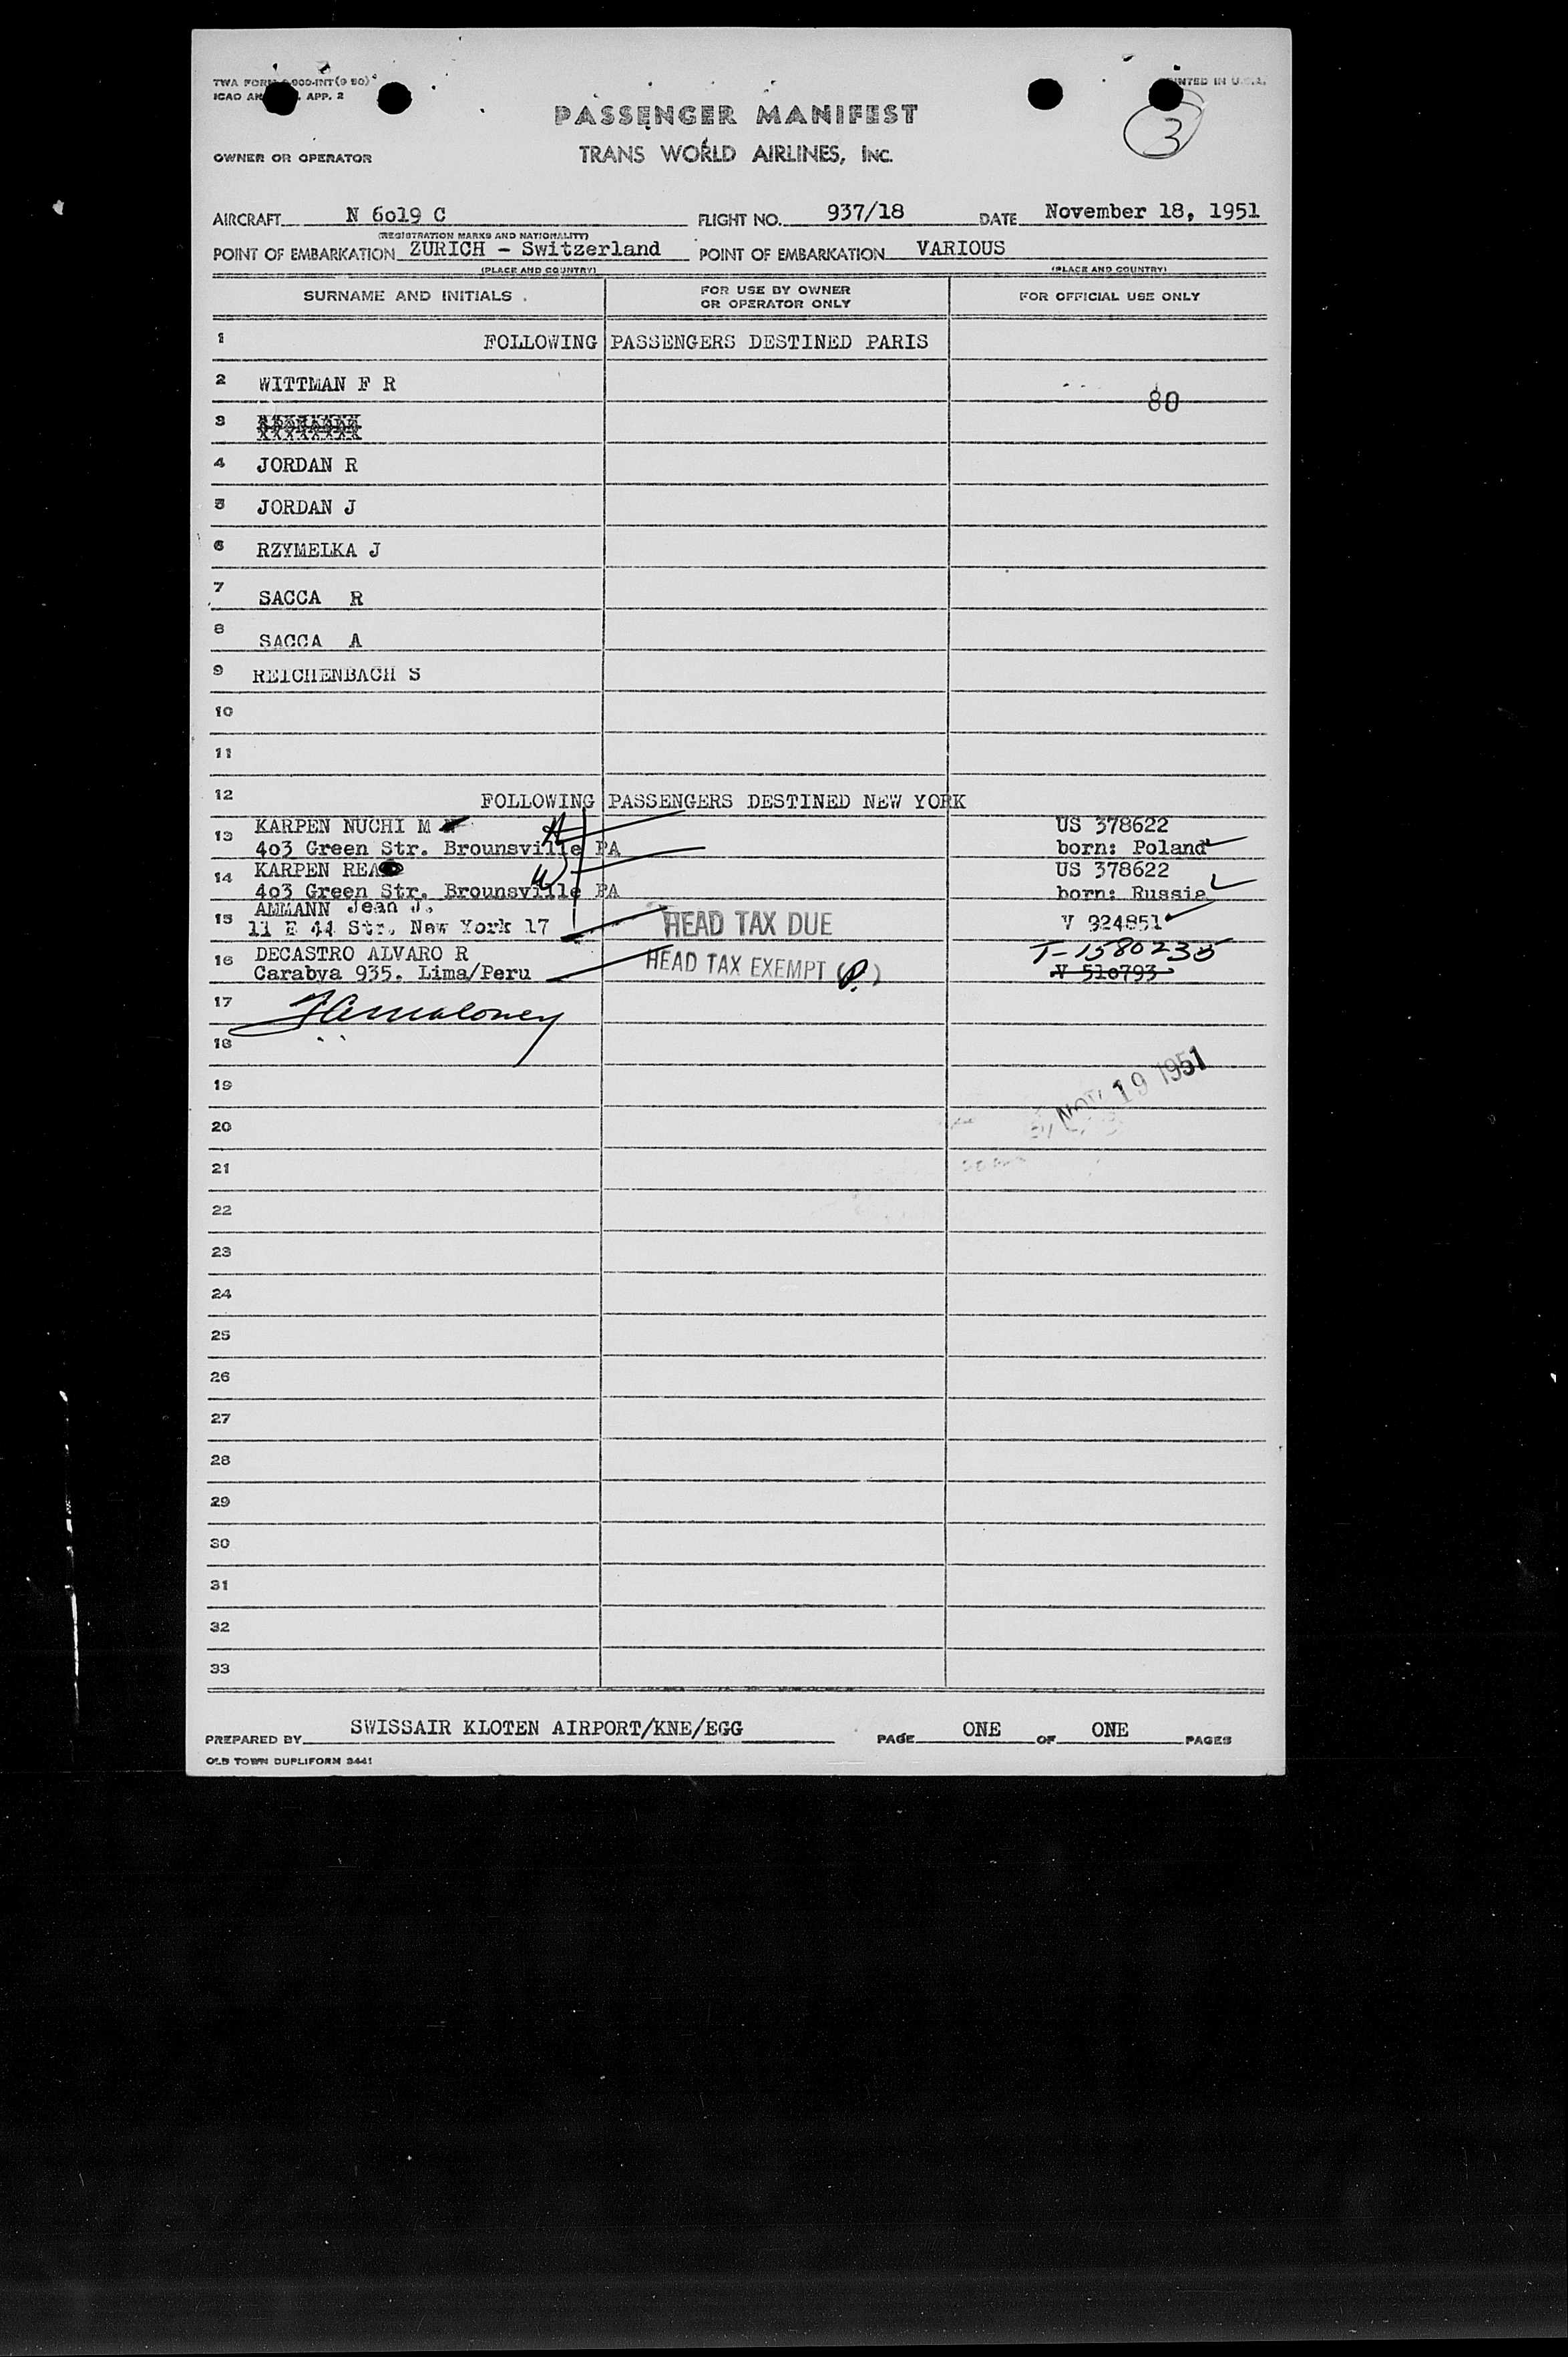 TWA FORM 000-INT (9 50)
PRINTED IN U.S.A.
ICAO APP. 2
PASSENGER MANIFEST
3
OWNER OR OPERATOR
TRANS WORLD AIRLINES, Inc.
AIRCRAFT N 6o19 C FLIGHT NO. 937/18 DATE November 18, 1951
(REGISTRATION MARKS AND NATIONALITY)
POINT OF EMBARKATION ZURICH - Switzerland POINT OF EMBARKATION VARIOUS
(PLACE AND COUNTRY) (PLACE AND COUNTRY)
SURNAME AND INITIALS FOR USE BY OWNER OR OPERATOR ONLY FOR OFFICIAL USE ONLY
1 FOLLOWING PASSENGERS DESTINED PARIS
2 WITTMAN F R
80
3
4 JORDAN R
5 JORDAN J
6 RZYMELKA J
7 SACCA R
8 SACCA A
9 REICHENBACH S
10
11
12 FOLLOWING PASSENGERS DESTINED NEW YORK
13 KARPEN NUCHI M H US 378622
4o3 Green Str. Brounsville PA born: Poland
14 KARPEN REA W US 378622
4o3 Green Str. Brounsville PA born: Russia
15 AMMANN Jean J.
11 E 44 Str. New York 17 HEAD TAX DUE V 924851
16 DECASTRO ALVARO R T-1580235
Carabya 935. Lima/Peru HEAD TAX EXEMPT (P.) V 51o793
17 Maloney
18
19 NOV 19 1951
20
21
22
23
24
25
26
27
28
29
30
31
32
33
PREPARED BY SWISSAIR KLOTEN AIRPORT/KNE/EGG PAGE ONE OF ONE PAGES
OLD TOWN DUPLIFORM 2441